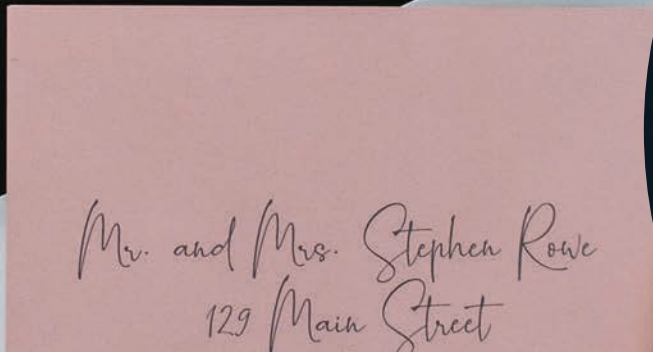 Mr. and Mrs. Stephen Rowe
129 Main Street